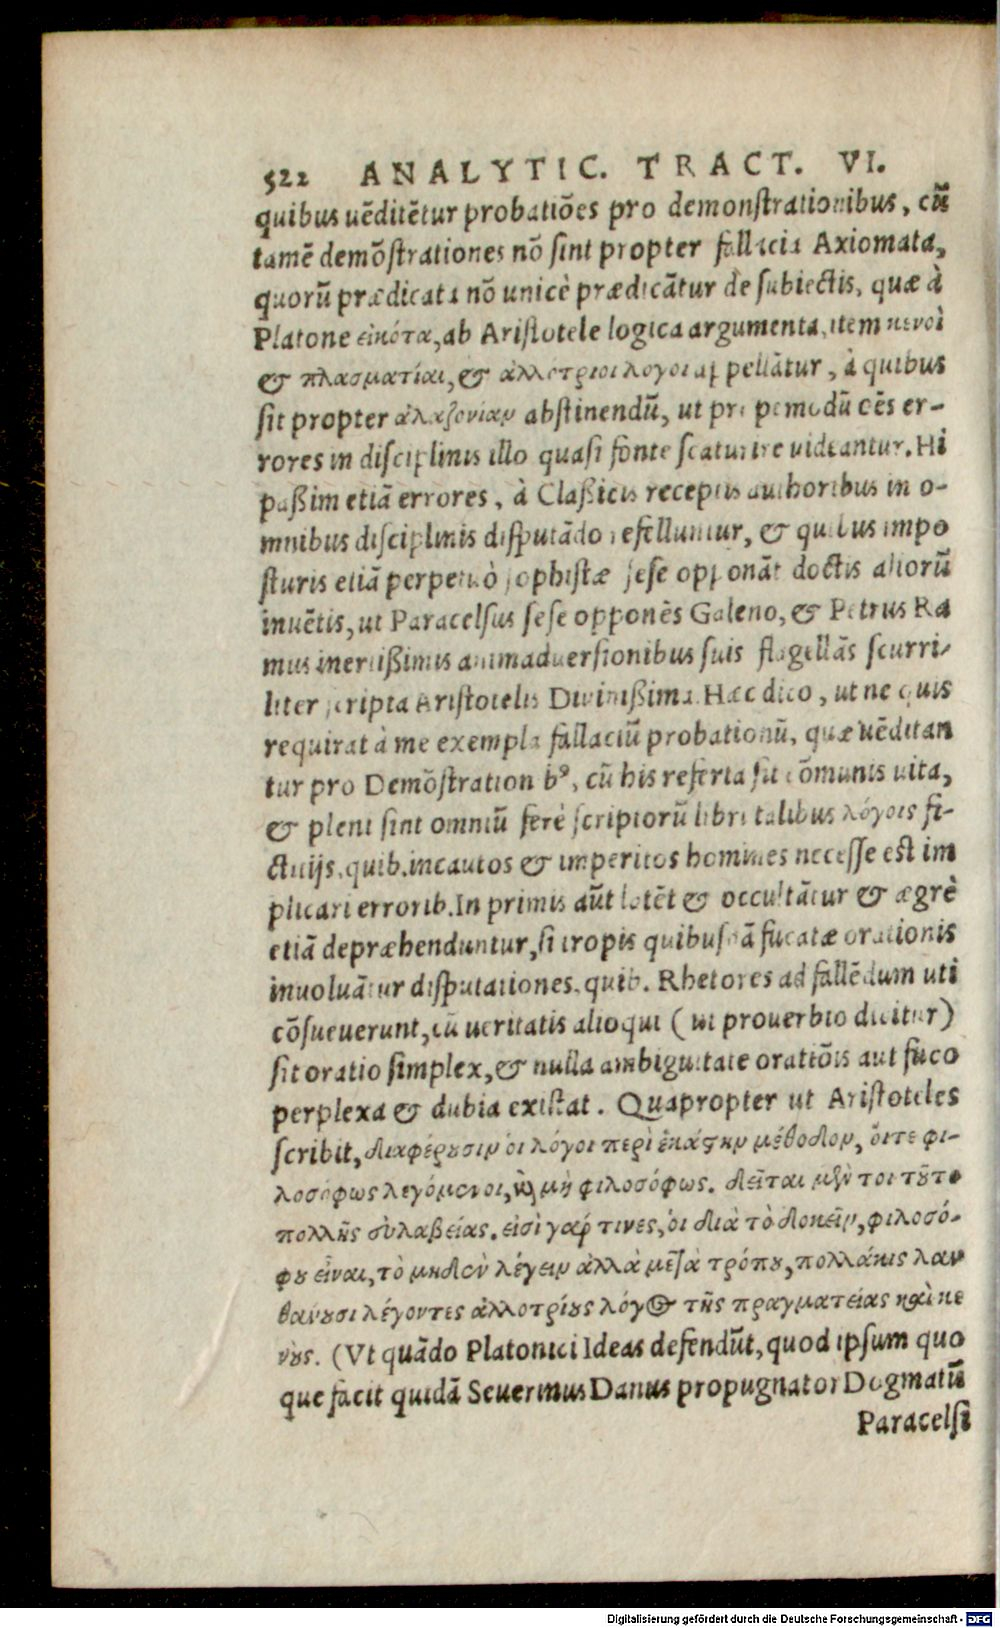 522 ANALYTIC. TRACT. VI.
quibus uēditētur probatiōes pro demonſtrationibus, cū
tamē demōſtrationes nō ſint propter fallacia Axiomata,
quorū prædicata nō unicè prædicātur de ſubiectis, quæ à
Platone εἰκότα, ab Ariſtotele logica argumenta, item κενοὶ
& πλασματίαι, & ἀλλότριοι λογοι appellātur, à quibus
ſit propter ἀλαζονίαν abſtinendū, ut propemodū oēs er-
rores in diſciplinis illo quaſi fonte ſcaturire uideantur. Hi
paßim etiā errores, à Claßicis receptis authoribus in o-
mnibus diſciplinis diſputādo refelluntur, & quibus impo
ſturis etiā perpetuò ſophiſtæ ſeſe opponāt doctis aliorū
inuētis, ut Paracelſus ſeſe opponēs Galeno, & Petrus Ra
mus inertißimis animaduerſionibus ſuis flagellās ſcurri-
liter ſcripta Ariſtotelis Diuinißima. Hæc dico, ut ne quis
requirat à me exempla fallaciū probationū, quæ uēditan
tur pro Demōſtrationibꝰ, cū his referta ſit cōmunis uita,
& pleni ſint omniū ferè ſcriptorū libri talibus λόγοις fi-
ctitijs, quib. incautos & imperitos homines neceſſe eſt im
plicari errorib. In primis aūt latēt & occultātur & ægrè
etiā depræhenduntur, ſi tropis quibuſdā fucatæ orationis
inuoluātur diſputationes, quib. Rhetores ad fallēdum uti
cōſueuerunt, cū ueritatis alioqui (ut prouerbio dicitur)
ſit oratio ſimplex, & nulla ambiguitate oratiōis aut fuco
perplexa & dubia exiſtat. Quapropter ut Ariſtoteles
ſcribit, διαφέρουσιν οἱ λόγοι περὶ ἑκάστην μέθοδον, ὅιτε φι-
λοσόφως λεγόμενοι, καὶ μὴ φιλοσόφως. δεῖται μὲν τοι τοῦτο
πολλῆς συλαβείας. εἰσὶ γάρ τινες, ὁι διὰ τὸ δοκεῖν, φιλοσό-
φου εἶναι, τὸ μηδὲν λέγειν ἀλλὰ μεῖὰ τρόπου, πολλάκις λαν
θανουσι λέγοντες ἀλλοτρίους λόγους τῆς πραγματείας καὶ κε
νούς. (Vt quādo Platonici Ideas defendūt, quod ipſum quo
que facit quidā Seuerinus Danus propugnator Dogmatū
Paracelſi
Digitalisierung gefördert durch die Deutsche Forschungsgemeinschaft - DFG